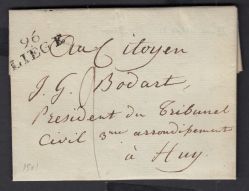 96
LIÉGE
Au Citoyen
J. G. Bodart,
President du Tribunal
Civil 3me arrondissement
à Huy